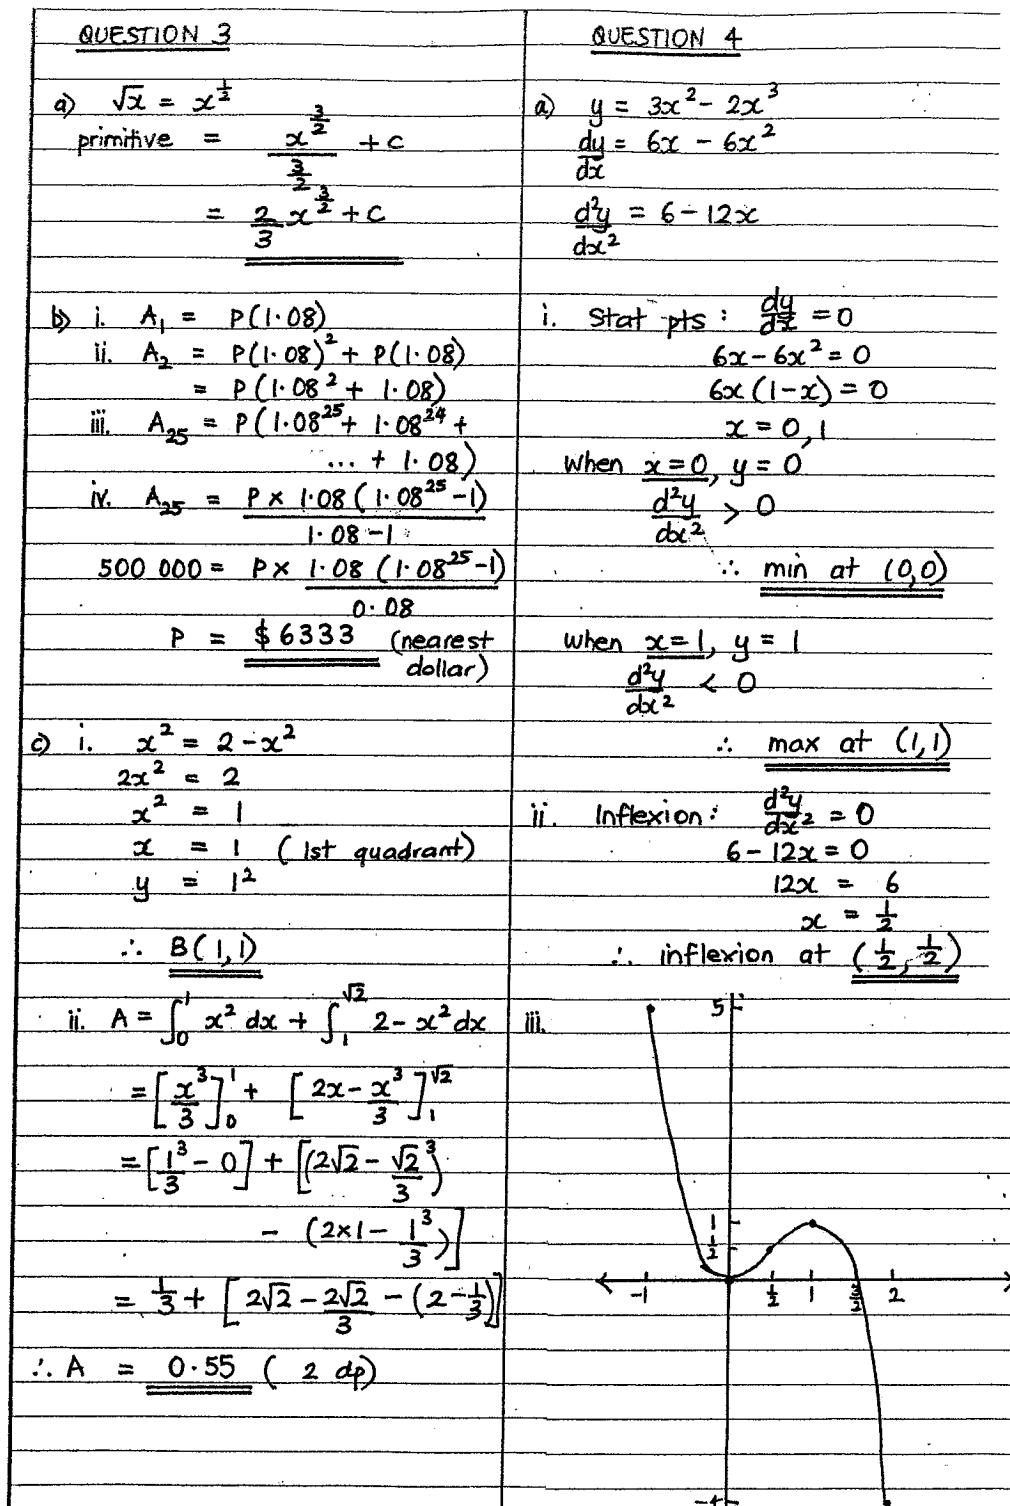 QUESTION 3
a) √x = x^(1/2)
primitive = x^(3/2) / (3/2) + c
= 2/3 x^(3/2) + c
b) i. A₁ = P(1·08)
ii. A₂ = P(1·08)² + P(1·08)
= P(1·08² + 1·08)
iii. A₂₅ = P(1·08²⁵ + 1·08²⁴ +
... + 1·08)
iv. A₂₅ = P × 1·08 (1·08²⁵ - 1) / 1·08 - 1
500 000 = P × 1·08 (1·08²⁵ - 1) / 0·08
P = $6333 (nearest
dollar)
c) i. x² = 2 - x²
2x² = 2
x² = 1
x = 1 (1st quadrant)
y = 1²
∴ B(1,1)
ii. A = ∫₀¹ x² dx + ∫₁^√2 2 - x² dx
= [x³/3]₀¹ + [2x - x³/3]₁^√2
= [1³/3 - 0] + [(2√2 - √2³/3)
- (2×1 - 1³/3)]
= 1/3 + [2√2 - 2√2/3 - (2 - 1/3)]
∴ A = 0·55 (2 dp)
QUESTION 4
a) y = 3x² - 2x³
dy/dx = 6x - 6x²
d²y/dx² = 6 - 12x
i. Stat pts : dy/dx = 0
6x - 6x² = 0
6x(1-x) = 0
x = 0, 1
When x=0, y = 0
d²y/dx² > 0
∴ min at (0,0)
When x=1, y = 1
d²y/dx² < 0
∴ max at (1,1)
ii. Inflexion: d²y/dx² = 0
6 - 12x = 0
12x = 6
x = 1/2
∴ inflexion at (1/2, 1/2)
iii.
5
1
1/2
-1 1/2 1 3/2 2
-4